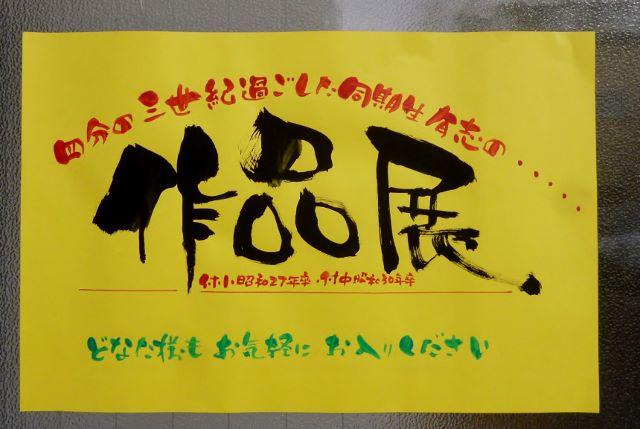 四分の三世紀過ごした同期生有志の・・・・・
作品展.
付小昭和27年卒・付中昭和30年卒
どなた様も お気軽に お入りください